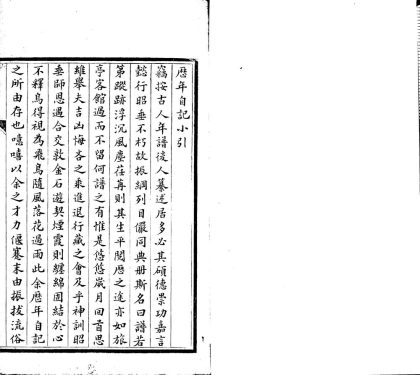 歷年自記小引
竊按古人年譜後人纂述居多必其碩德崇功嘉言
懿行昭垂不朽故振綱列目儼同典册斯名曰譜若
第蹤跡浮沉風塵荏苒則其生平閱歷之途亦如旅
亭客館過而不留何譜之有惟是悠悠歲月回首思
維舉夫吉凶悔吝之乘進退行藏之會及乎神訓昭
垂師恩遇合交敦金石遊契煙霞則纏綿固結於心
不釋烏得視為飛鳥隨風落花過雨此余歷年自記
之所由存也噫嘻以余之才力偃蹇末由振拔流俗